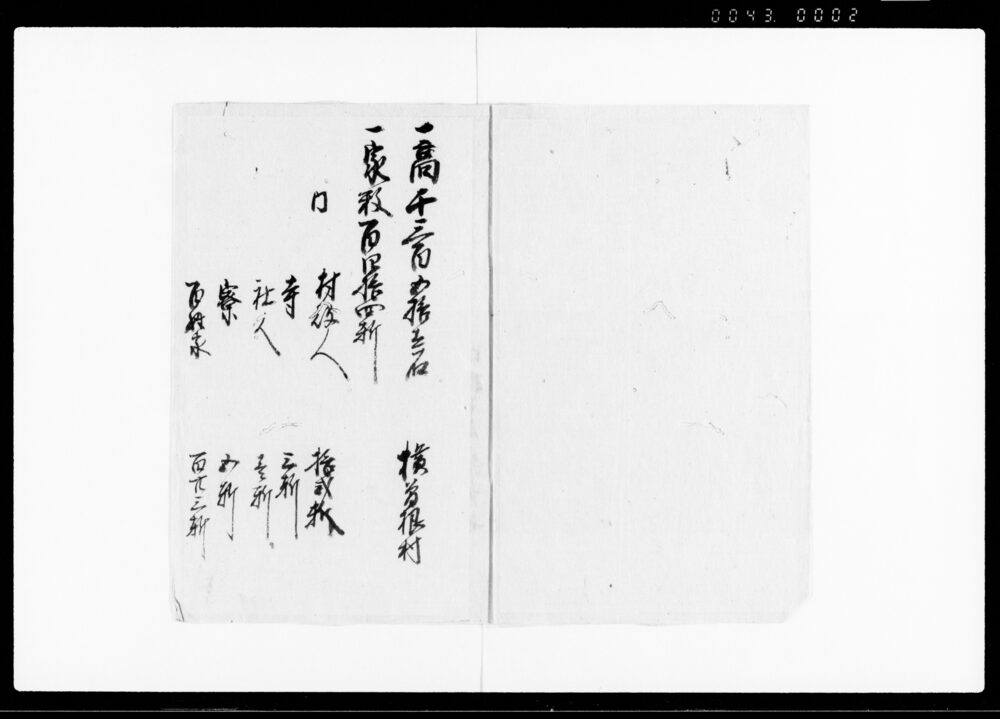 0043. 0002
一高千三百五拾壱石 横曽根村
一家数百四拾四軒
内 村役人 拾弐軒
寺 三軒
社人 壱軒
寮 五軒
百姓家 百廿三軒